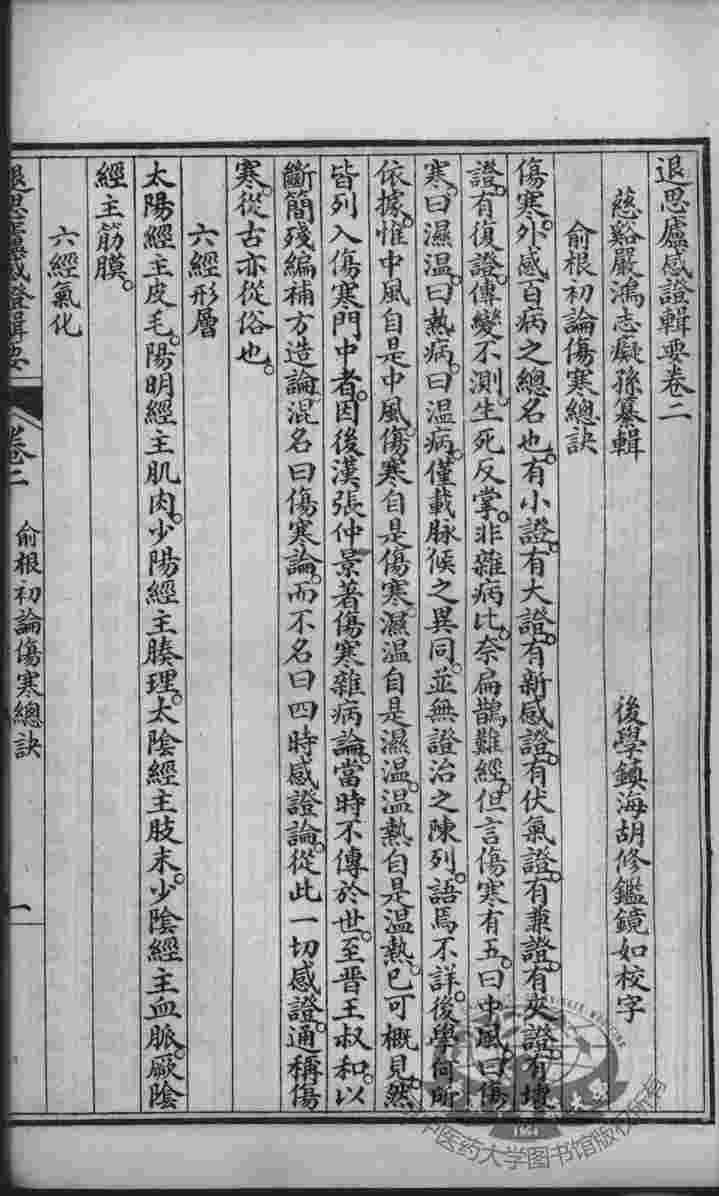 退思廬感證輯要卷二
慈谿嚴鴻志癡孫纂輯　後學鎮海胡修鑑鏡如校字
俞根初論傷寒總訣
傷寒。外感百病之總名也。有小證。有大證。有新感證。有伏氣證。有兼證。有夾證。有壞
證。有復證。傳變不測。生死反掌。非雜病比。奈扁鵲難經。但言傷寒有五。曰中風。曰傷
寒。曰濕溫。曰熱病。曰温病。僅載脉候之異同。並無證治之陳列。語焉不詳。後學何所
依據。惟中風自是中風。傷寒自是傷寒。濕温自是濕温。温熱自是温熱。已可概見。然
皆列入傷寒門中者。因後漢張仲景著傷寒雜病論。當時不傳於世。至晉王叔和。以
斷簡殘編。補方造論。混名曰傷寒論。而不名曰四時感證論。從此一切感證。通稱傷
寒。從古亦從俗也。
六經形層
太陽經主皮毛。陽明經主肌肉。少陽經主腠理。太陰經主肢末。少陰經主血脈。厥陰
經主筋膜。
六經氣化
退思廬感證輯要　卷二　俞根初論傷寒總訣　一
中医药大学图书馆版权所有